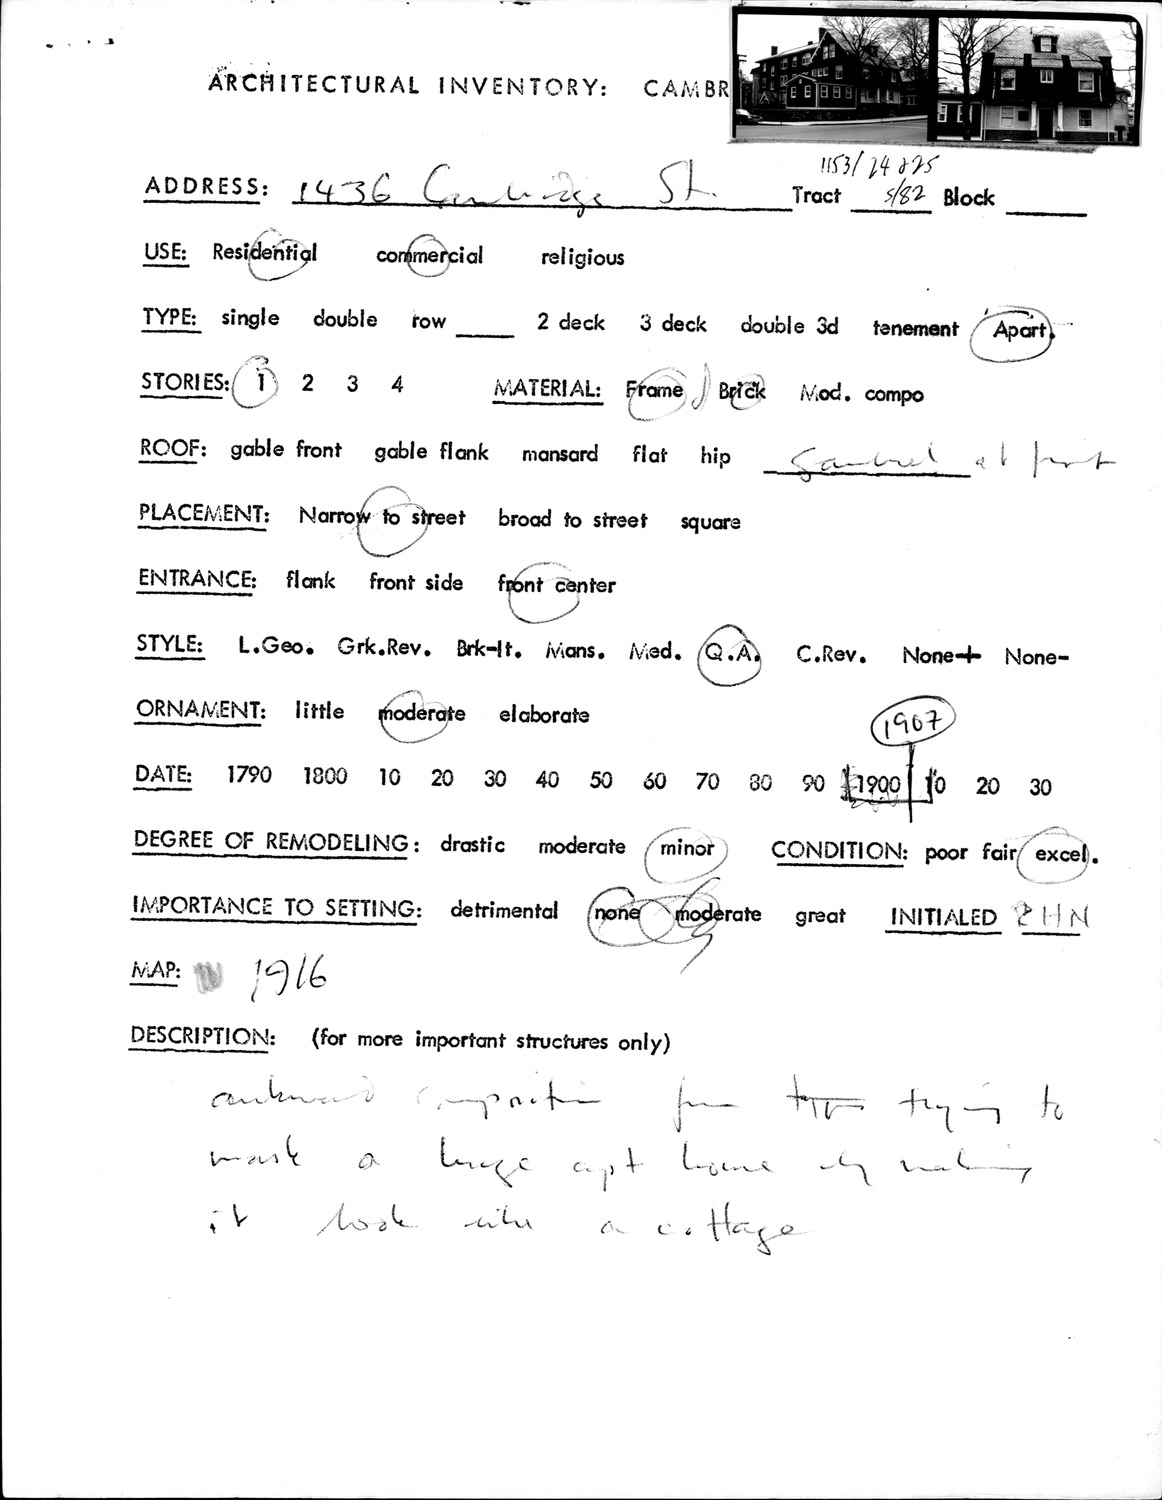 ARCHITECTURAL INVENTORY: CAMBR
1153/24 & 25
ADDRESS: 1436 Cambridge St. Tract 5/82 Block
USE: Residential commercial religious
TYPE: single double row ____ 2 deck 3 deck double 3d tenement Apart.
STORIES: 1 2 3 4 MATERIAL: Frame / Brick Mod. compo
ROOF: gable front gable flank mansard flat hip gambrel at front
PLACEMENT: Narrow to street broad to street square
ENTRANCE: flank front side front center
STYLE: L.Geo. Grk.Rev. Brk-It. Mans. Med. Q.A. C.Rev. None+ None-
ORNAMENT: little moderate elaborate
1907
DATE: 1790 1800 10 20 30 40 50 60 70 80 90 1900 10 20 30
DEGREE OF REMODELING: drastic moderate minor CONDITION: poor fair excel.
IMPORTANCE TO SETTING: detrimental none moderate great INITIALED RHN
MAP: 1916
DESCRIPTION: (for more important structures only)
awkward composition from trying to
mask a large apt house by making
it look like a cottage